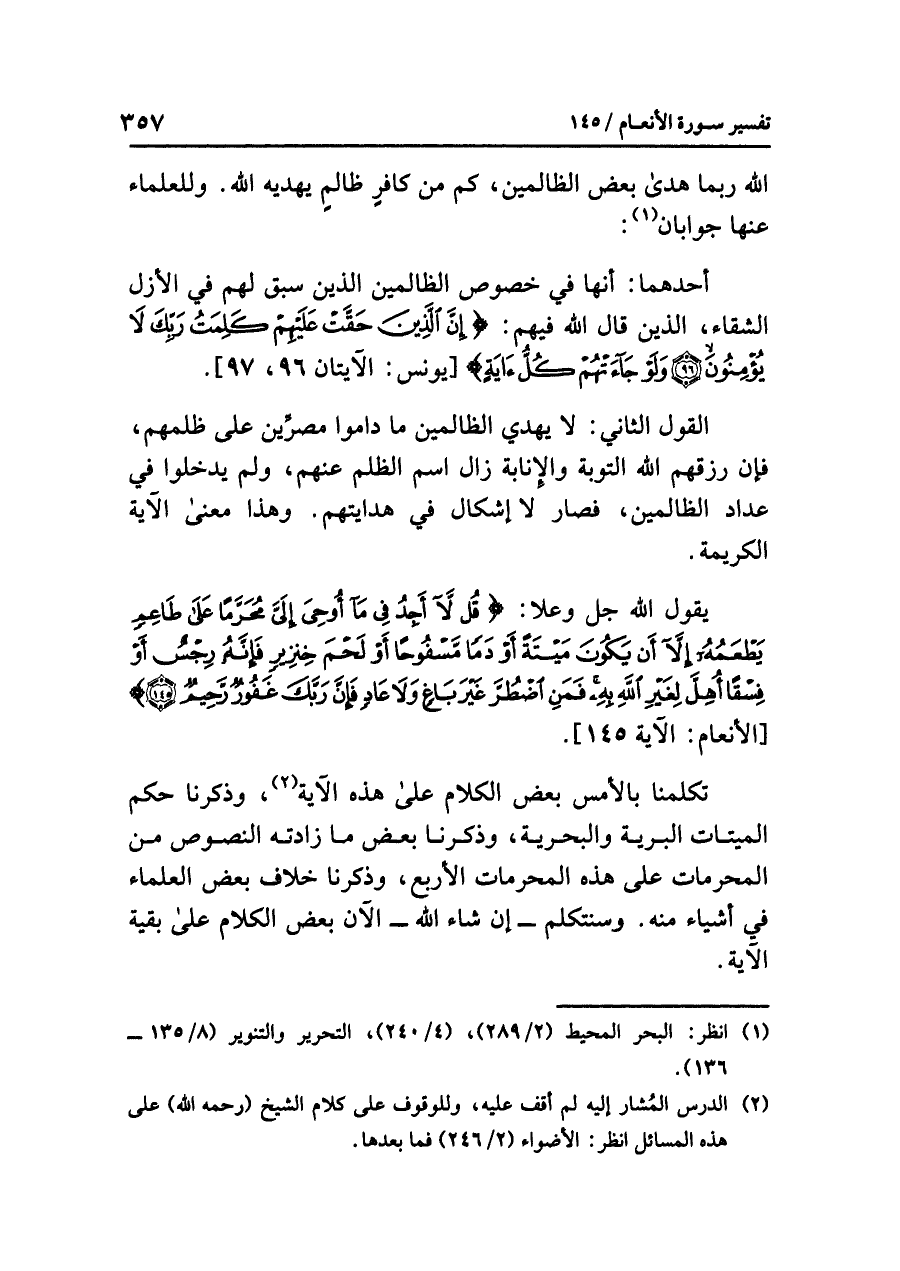 تفسير سورة الأنعام / ١٤٥
٣٥٧
الله ربما هدىٰ بعض الظالمين، كم من كافرٍ ظالمٍ يهديه الله. وللعلماء
عنها جوابان(١):
أحدهما: أنها في خصوص الظالمين الذين سبق لهم في الأزل
الشقاء، الذين قال الله فيهم: ﴿ إِنَّ ٱلَّذِينَ حَقَّتْ عَلَيْهِمْ كَلِمَتُ رَبِّكَ لَا
يُؤْمِنُونَۙ ﴿٩٦﴾ وَلَوْ جَآءَتْهُمْ كُلُّ ءَايَةٍ﴾ [يونس: الآيتان ٩٦، ٩٧].
القول الثاني: لا يهدي الظالمين ما داموا مصرِّين على ظلمهم،
فإن رزقهم الله التوبة والإنابة زال اسم الظلم عنهم، ولم يدخلوا في
عداد الظالمين، فصار لا إشكال في هدايتهم. وهذا معنىٰ الآية
الكريمة.
يقول الله جل وعلا: ﴿ قُل لَّآ أَجِدُ فِي مَآ أُوحِيَ إِلَيَّ مُحَرَّمًا عَلَىٰ طَاعِمٍ
يَطْعَمُهُۥٓ إِلَّآ أَن يَكُونَ مَيْتَةً أَوْ دَمًا مَّسْفُوحًا أَوْ لَحْمَ خِنزِيرٍ فَإِنَّهُۥ رِجْسٌ أَوْ
فِسْقًا أُهِلَّ لِغَيْرِ ٱللَّهِ بِهِۦۚ فَمَنِ ٱضْطُرَّ غَيْرَ بَاغٍ وَلَا عَادٍ فَإِنَّ رَبَّكَ غَفُورٌ رَّحِيمٌ ﴿١٤٥﴾ ﴾
[الأنعام: الآية ١٤٥].
تكلمنا بالأمس بعض الكلام علىٰ هذه الآية(٢)، وذكرنا حكم
الميتات البرية والبحرية، وذكرنا بعض ما زادته النصوص من
المحرمات على هذه المحرمات الأربع، وذكرنا خلاف بعض العلماء
في أشياء منه. وسنتكلم ــ إن شاء الله ــ الآن بعض الكلام علىٰ بقية
الآية.
(١) انظر: البحر المحيط (٢/٢٨٩)، (٤/٢٤٠)، التحرير والتنوير (٨/١٣٥ ــ
١٣٦).
(٢) الدرس المُشار إليه لم أقف عليه، وللوقوف على كلام الشيخ (رحمه الله) على
هذه المسائل انظر: الأضواء (٢/٢٤٦) فما بعدها.